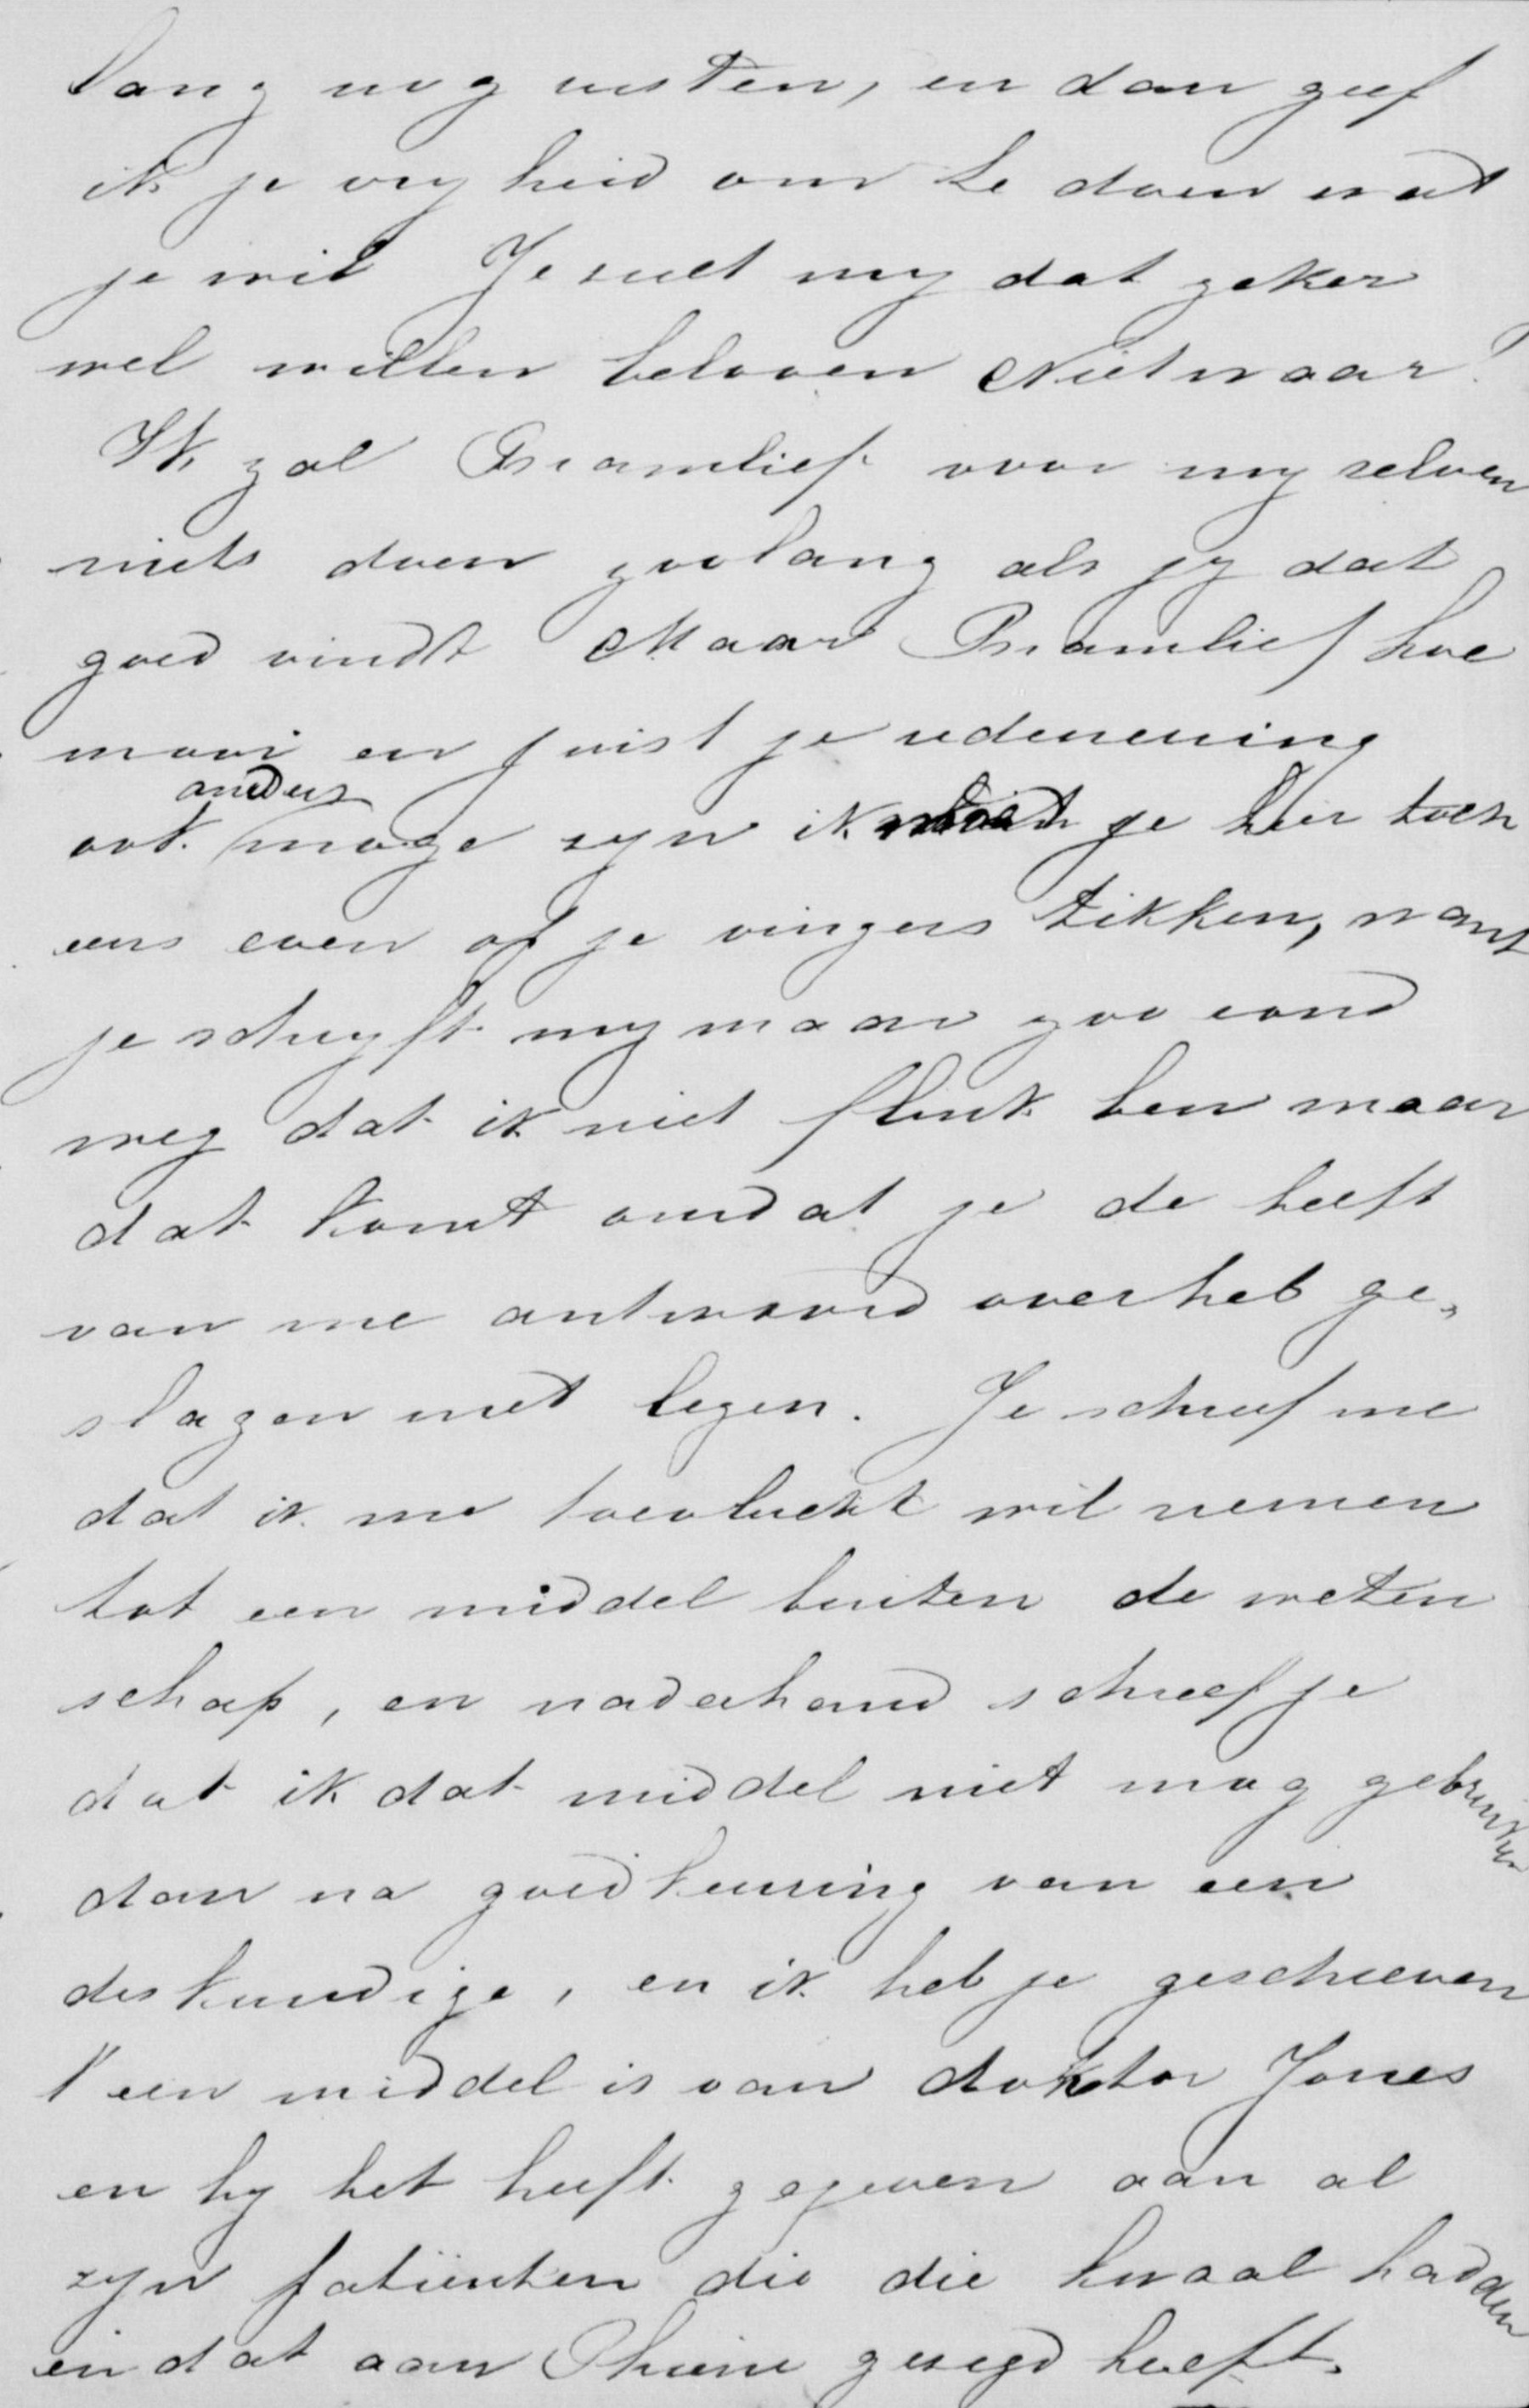 lang nog rusten, en dan geef
ik je vryheid om te doen wat
je wil Je sult my dat zeker
wel willen beloven Nietwaar?
Ik zal Bramlief voor my selven
niets doen zoolang als jy dat
goed vindt Maar Bramlief hoe
mooi en juist je redeneering
anders
ook moge syn ik moet je hier toch
eens even op je vingers tikken, want
je schryft my maar zoo rond
weg dat ik niet flink ben maar
dat komt omdat je de helft
van me antwoord over heb ge„
slagen met lezen. Je schreef me
dat ik me toevlucht wil nemen
tot een middel buiten de weten
schap, en naderhand schreef je
dat ik dat middel niet mag gebruiken
dan na goedkeuring van een
deskundige, en ik heb je geschreven
't een middel is van doktor Jones
en hy het heeft gegeven aan al
zyn patiënten die die kwaal hadden
en dat aan Phine gesegd heeft.